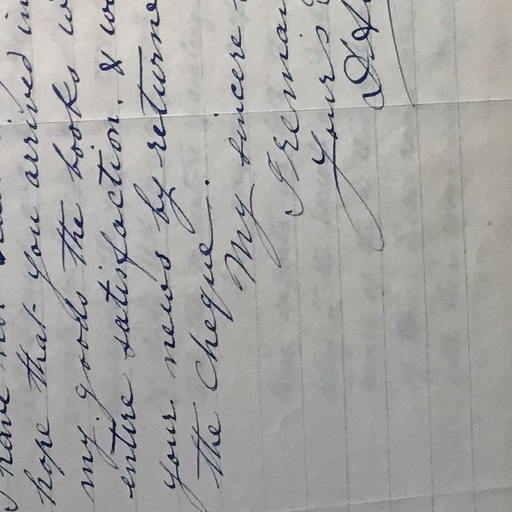 I have not
hope that you arrived in
my goods the books
entire satisfaction. &
your news by returne
the Cheque.
My sincere
I remai
Yours